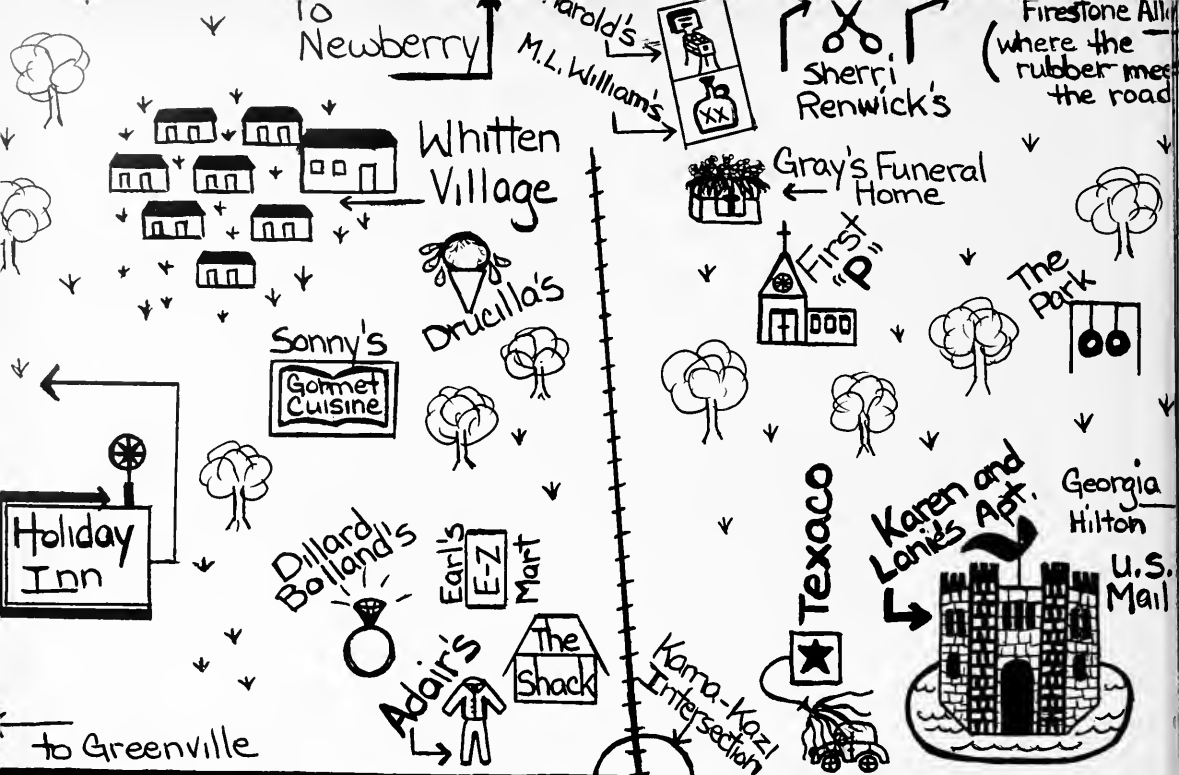 To
Newberry
Harold's
M.L. William's
XX
Sherri
Renwick's
(where the
rubber
the road
Firestone
Whitten
Village
Gray's Funeral
Home
First
"P"
The
Park
Drucilla's
Sonny's
Gormet
Cuisine
Holiday
Inn
Dillard
Bolland's
Earl's
E-Z
Mart
The
Shack
Adair's
Texaco
Karen and
Lanie's Apt.
Georgia
Hilton
U.S.
Mail
Kama-Kazi
Intersection
to Greenville